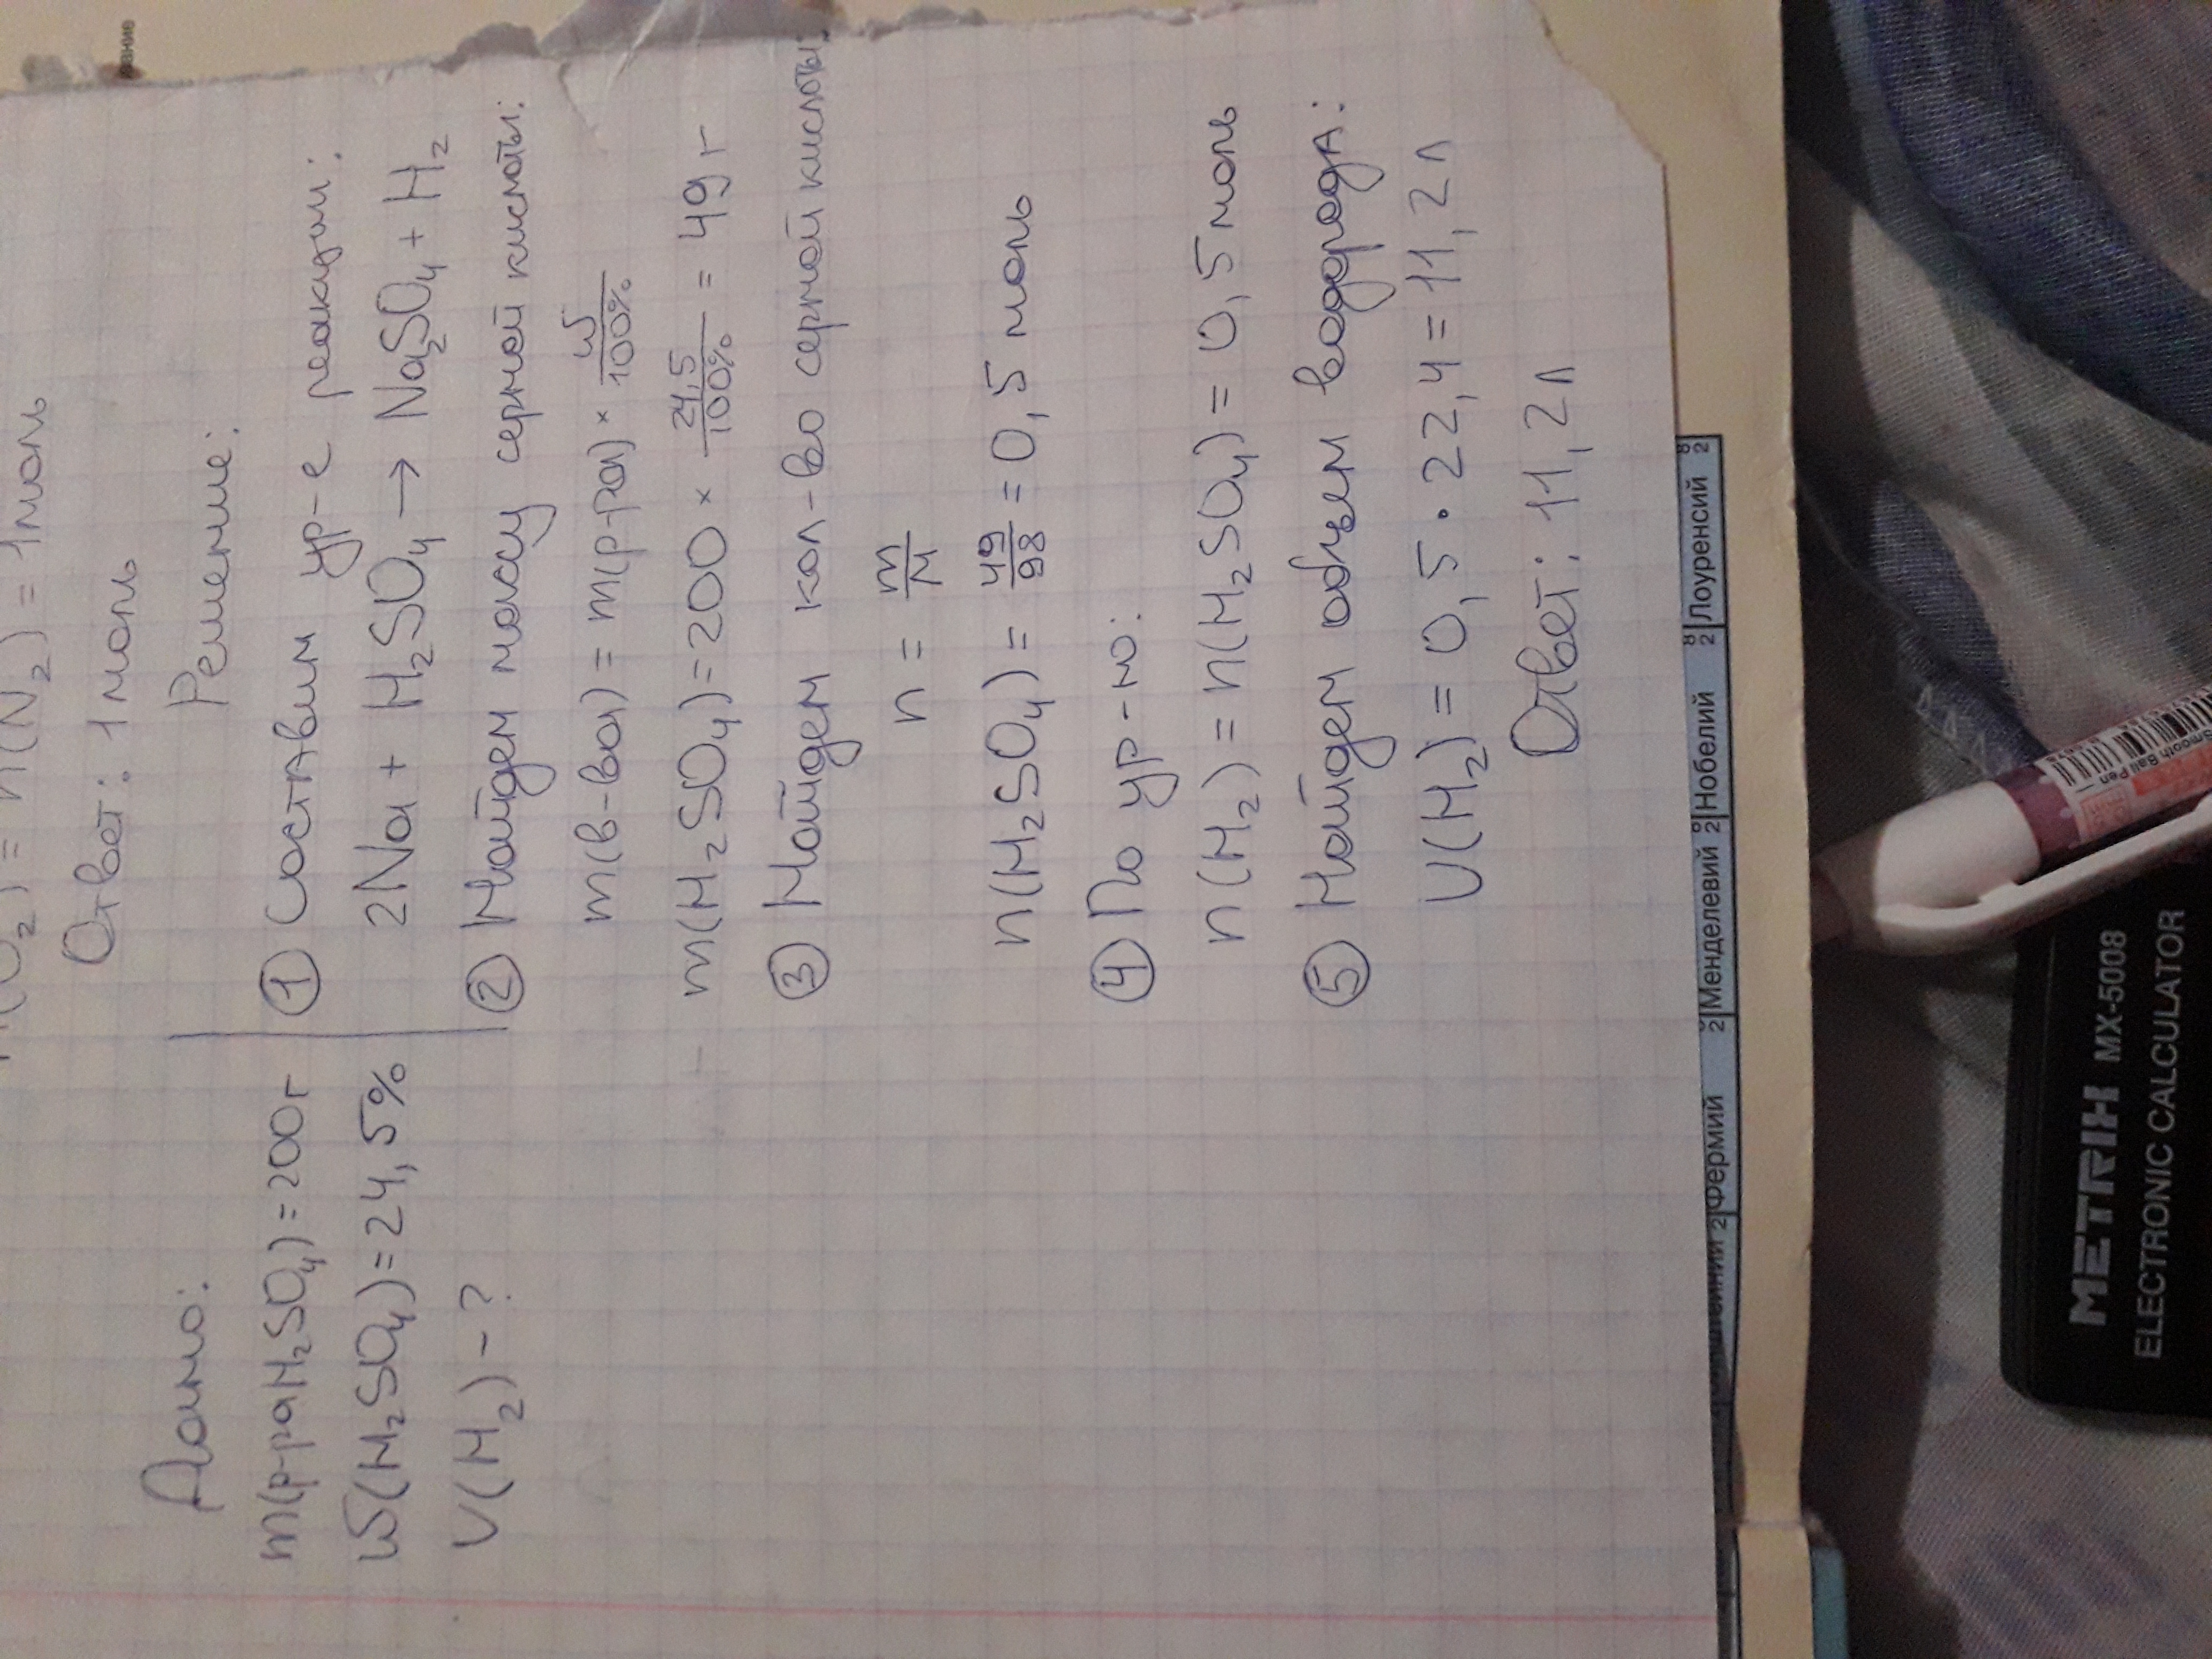 n(O₂) = n(N₂) = 1 моль
Ответ: 1 моль
Дано:
m(р-раH₂SO₄)=200г
ω(H₂SO₄)=24,5%
V(H₂) - ?
Решение:
① Составим ур-е реакции:
2Na + H₂SO₄ → Na₂SO₄ + H₂
② Найдем массу серной кислоты:
m(в-ва) = m(р-ра) × ω/100%
m(H₂SO₄)=200 × 24,5/100% = 49 г
③ Найдем кол-во серной кислоты:
n = m/M
n(H₂SO₄) = 49/98 = 0,5 моль
④ По ур-ю:
n(H₂) = n(H₂SO₄) = 0,5 моль
⑤ Найдем объем водорода:
V(H₂) = 0,5 · 22,4 = 11,2 л
Ответ: 11,2 л
2 Фермий
2 Менделевий
2 8 Нобелий
2 8 Лоуренсий
2 8
Smooth Ball Pen
METRIX MX-5008
ELECTRONIC CALCULATOR